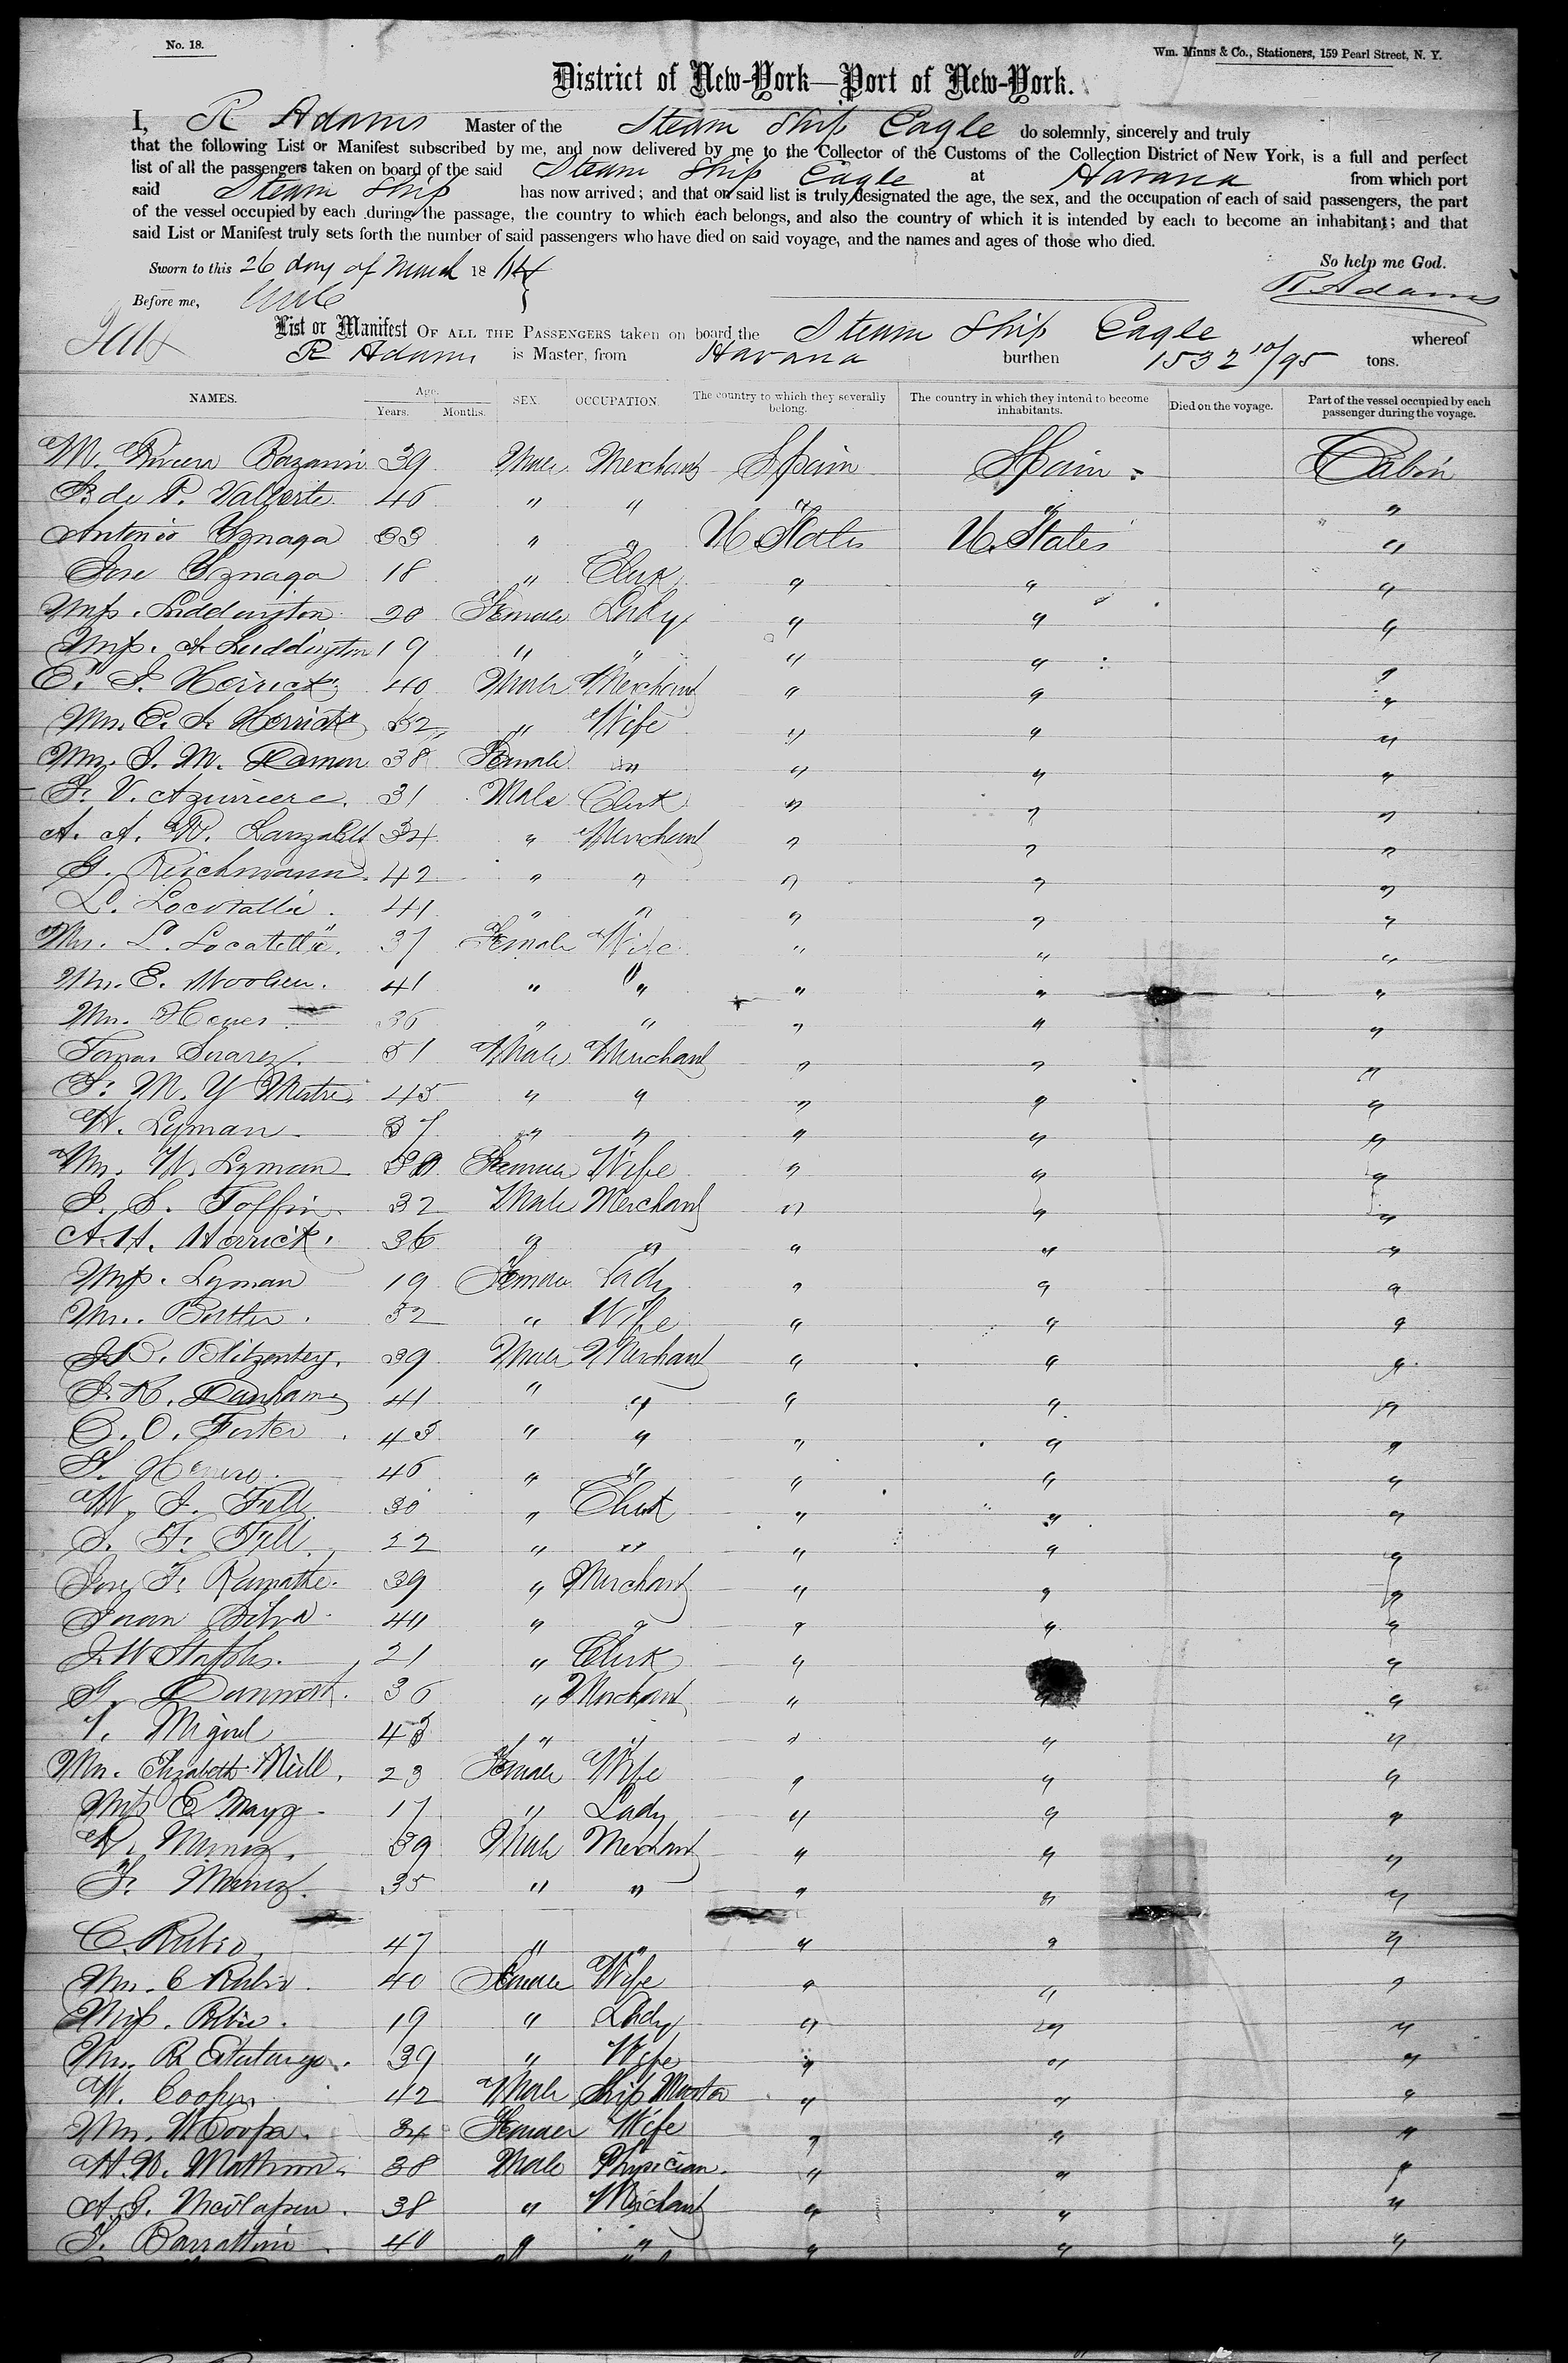 No. 18.
Wm. Minns & Co., Stationers, 159 Pearl Street, N. Y.
District of New-York—Port of New-York.
I, R Adams Master of the Steam Ship Eagle do solemnly, sincerely and truly
that the following List or Manifest subscribed by me, and now delivered by me to the Collector of the Customs of the Collection District of New York, is a full and perfect
list of all the passengers taken on board of the said Steam Ship Eagle at Havana from which port
said Steam Ship has now arrived; and that on said list is truly designated the age, the sex, and the occupation of each of said passengers, the part
of the vessel occupied by each during the passage, the country to which each belongs, and also the country of which it is intended by each to become an inhabitant; and that
said List or Manifest truly sets forth the number of said passengers who have died on said voyage, and the names and ages of those who died.
Sworn to this 26 day of March 18 So help me God.
Before me, R Adams
List or Manifest OF ALL THE PASSENGERS taken on board the Steam Ship Eagle whereof
R Adams is Master, from Havana burthen 1532 10/95 tons.
NAMES. Age. Years. Months. SEX. OCCUPATION. The country to which they severally belong. The country in which they intend to become inhabitants. Died on the voyage. Part of the vessel occupied by each passenger during the voyage.
M. Bazanin 39 Male Merchant Spain Spain Cabin
P. de P. 46 " " " " "
Antonio Yznaga 33 " " U. States U. States "
Jose Yznaga 18 " Clerk " " "
Miss. Luddington 20 Female Lady " " "
Miss. A Luddington 19 " " " " "
E. J. Herrick 40 Male Merchant " " "
Mrs. E. J. Herrick 32 " Wife " " "
Mrs. J. M. Damon 38 Female " " " "
F. V. 31 Male Clerk " " "
A. A. W. 34 " Merchant " " "
G. Reichmann 42 " " " " "
L. 41 " " " " "
Mrs. L. Locatelli 37 Female Wife " " "
Mrs. E. Woolsen 41 " " " " "
Mrs. 36 " " " " "
Tomas Suarez 51 Male Merchant " " "
F. M. Y Mestre 45 " " " " "
W. Lyman 37 " " " " "
Mrs. W. Lyman 30 Female Wife " " "
J. S. Toffin 32 Male Merchant " " "
A. H. Herrick 36 " " " " "
Miss. Lyman 19 Female Lady " " "
Mrs. 32 " Wife " " "
39 Male Merchant " " "
J. K. Dunham 41 " " " " "
C. O. Foster 43 " " " " "
46 " " " " "
W. J. Fell 30 " Clerk " " "
S. F. Fell 22 " " " " "
Jose F. 39 " Merchant " " "
Juan Silva 40 " " " " "
J. W Staples 21 " Clerk " " "
G. 36 " Merchant " " "
Miguel 43 " " " " "
Mrs. Elizabeth Neill 23 Female Wife " " "
Miss E 17 " Lady " " "
39 Male Merchant " " "
F. 35 " " " " "
C. Rubio 47 " " " " "
Mrs. C Rubio 40 Female Wife " " "
Miss. Rubio 19 " Lady " " "
Mrs. R 39 " Wife " " "
W. Cooper 42 Male Ship Master " " "
Mrs. W Cooper 34 Female Wife " " "
38 Male Physician " " "
A. G. 38 " Merchant " " "
Barrattini 40 " " " " "